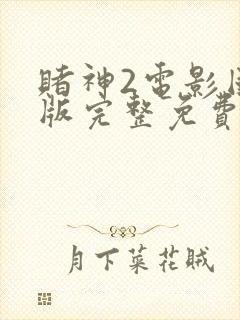 賭神2電影
版完整免費
月下菜花賊